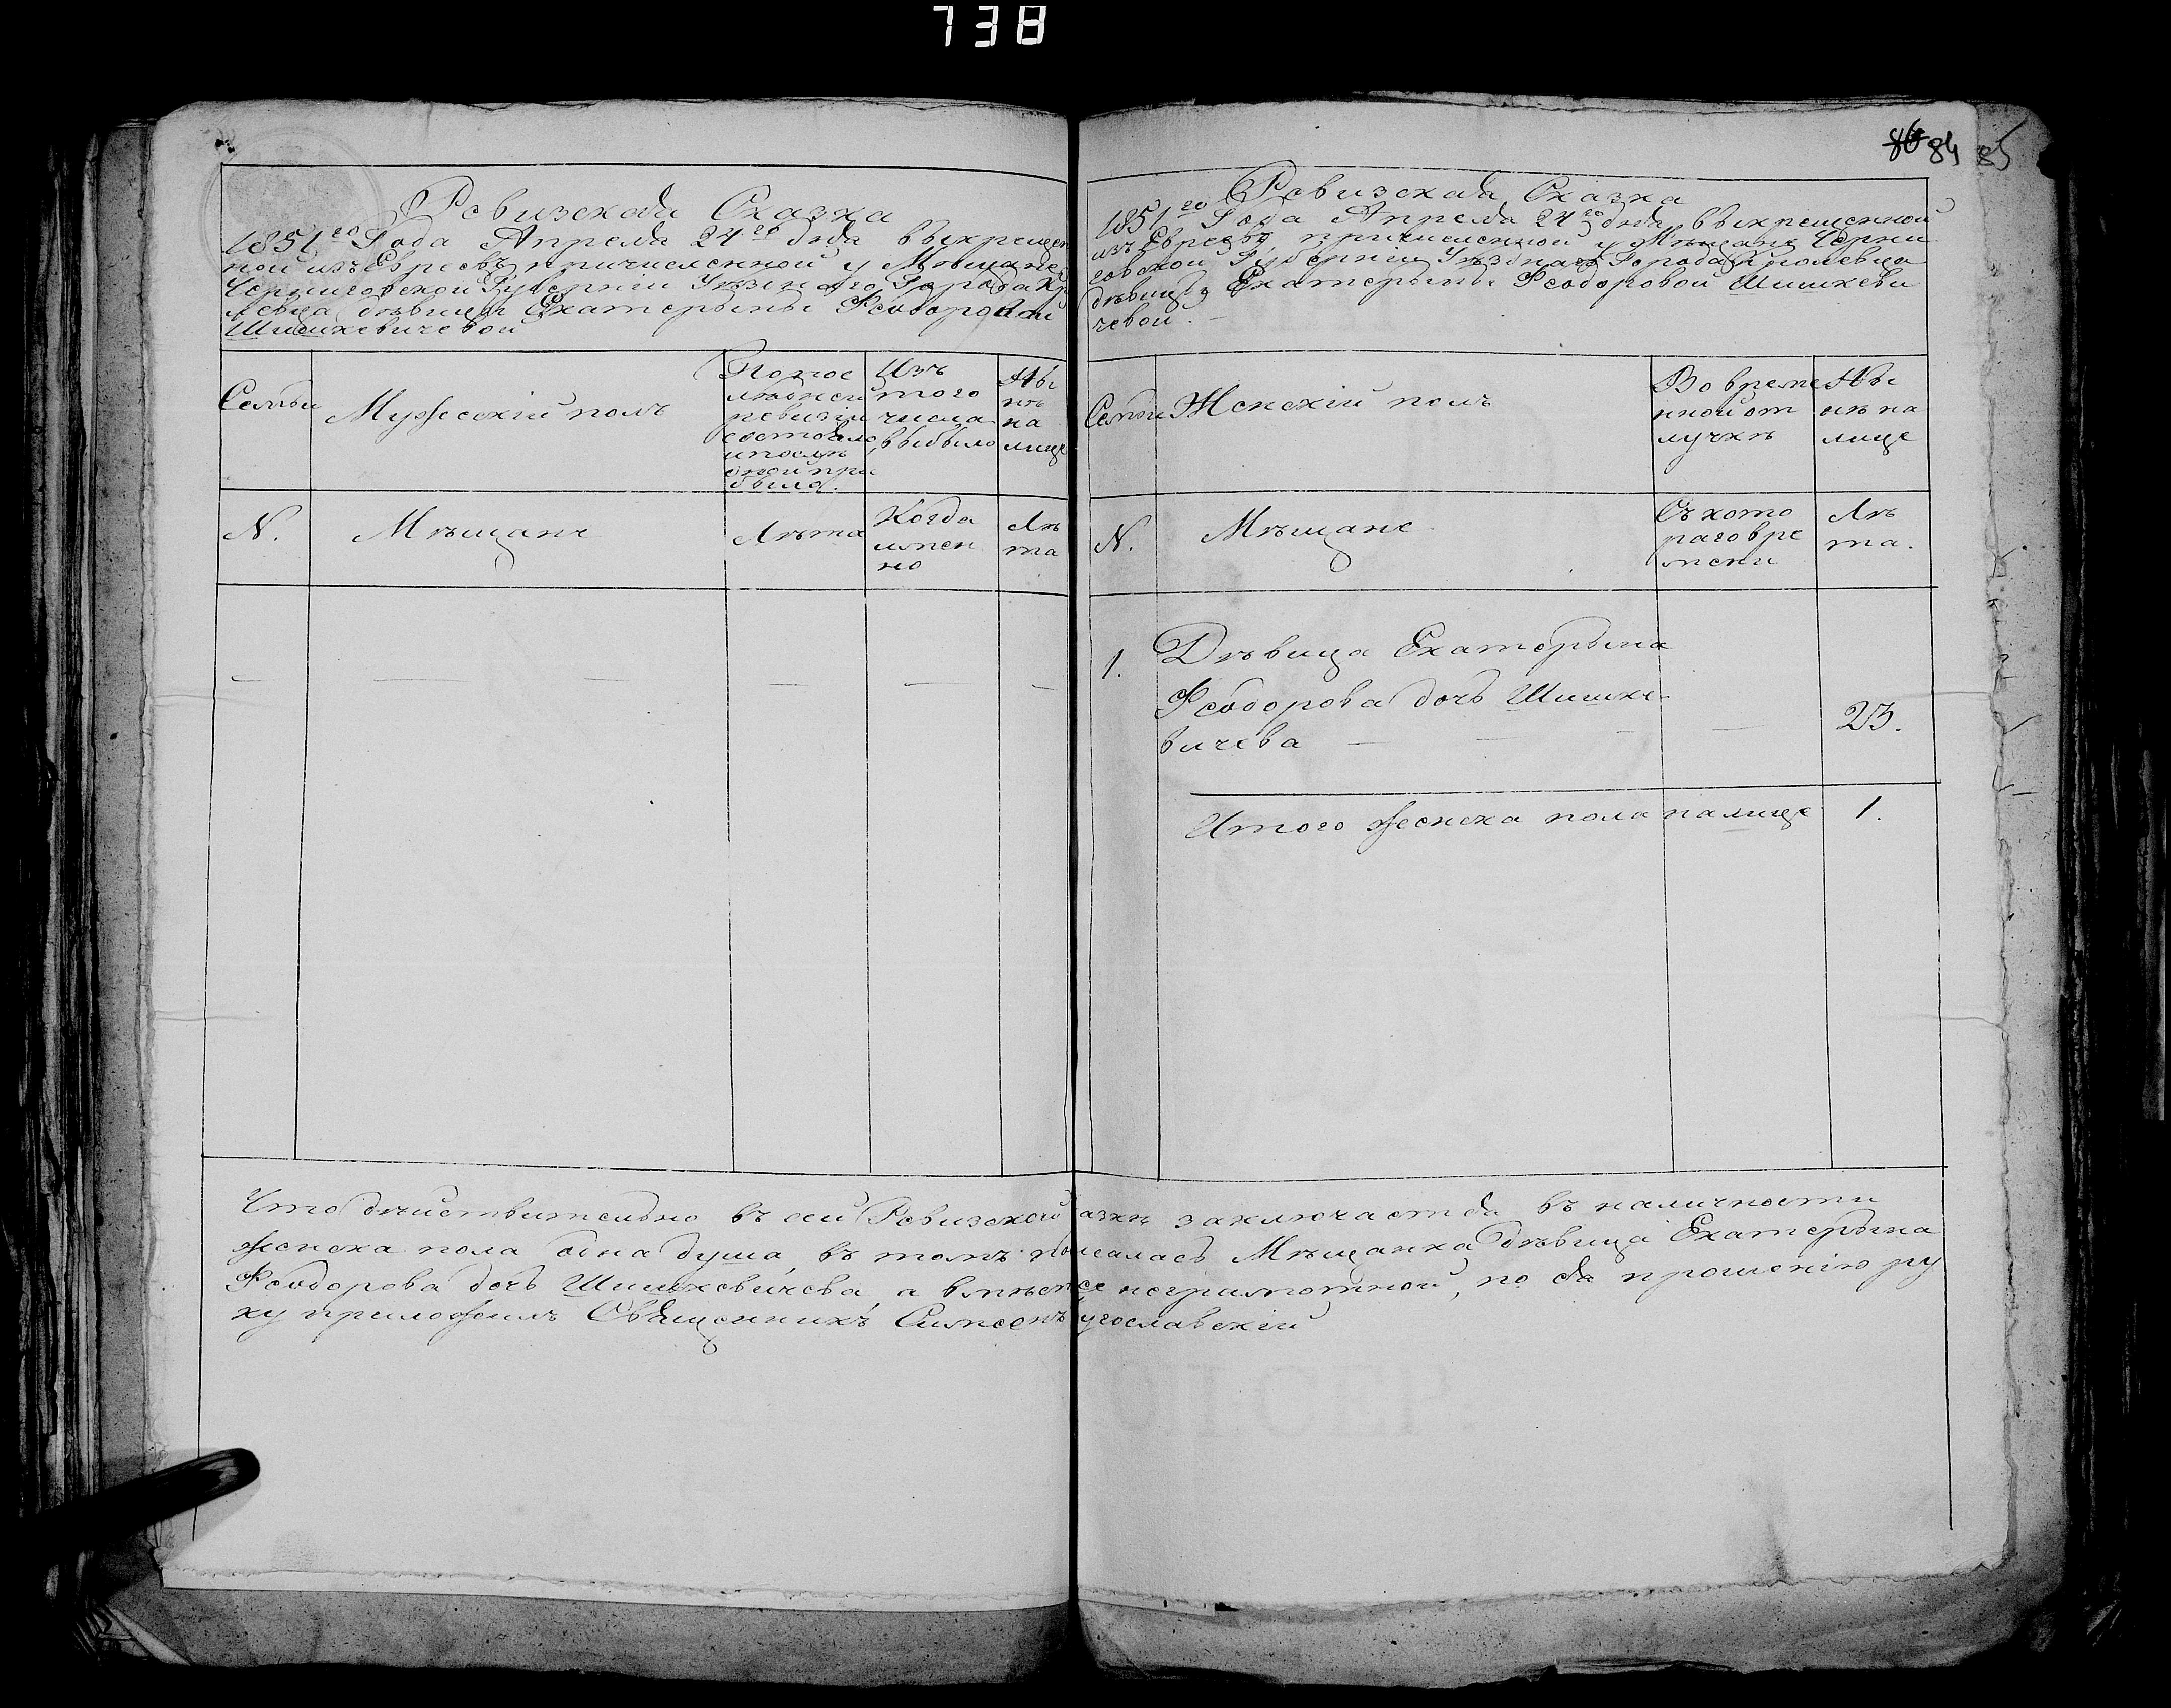 738
86 84 85
Ревизская Сказка
1851го Года Апреля 24го дня выкрещен
ной изъ Евреевъ, причисленной у Мѣщане
Черниговской Губерніи Уѣзднаго Города Кро
левца дѣвицы Екатерыны Феодоровой
Шишкевичевой
Семьи
Мужескій полъ
По пос
лѣдней
ревизіи
состояло
и послѣ
оной при
было.
Изъ
того
числа
выбыло
Ны
нѣ
на
лице
N.
Мѣщане
Лѣта
Когда
имен
но
Лѣ
та
Ревизская Сказка
1851го Года Апреля 24го дня, выкрещенной
изъ Евреевъ, причисленной у Мѣщане Черни
говской Губерніи Уѣзднаго Города Кролевца
дѣвицы Екатерыны Феодоровой Шишкеви
чевой.
Семьи
Женскій полъ
Во време
нной от
лучкѣ
Ны
нѣ на
лице
N.
Мѣщане
Съ кото
раго вре
мени
Лѣ
та.
1.
Дѣвица Екатерына
Феодорова дочь Шишке
вичева
23.
Итого женска пола на лице 1.
Что дѣйствительно въ сей Ревизской азкѣ заключается въ наличности
женска пола одна душа, въ томъ Мѣщанка дѣвица Екатерына
Феодорова дочь Шишкевичева, а вмѣсто ее неграмотной, по ея прошенію ру
ку приложилъ Священникъ Симеонъ угославскій